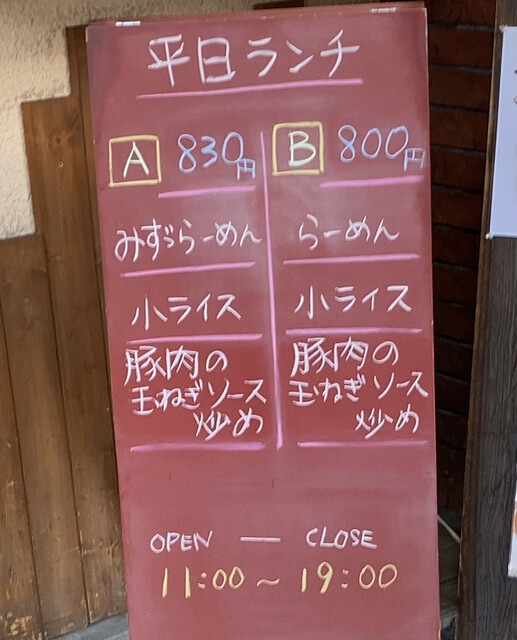 平日ランチ
A 830円
みずらーめん
小ライス
豚肉の
玉ねぎソース
炒め
B 800円
らーめん
小ライス
豚肉の
玉ねぎソース
炒め
OPEN — CLOSE
11:00～19:00